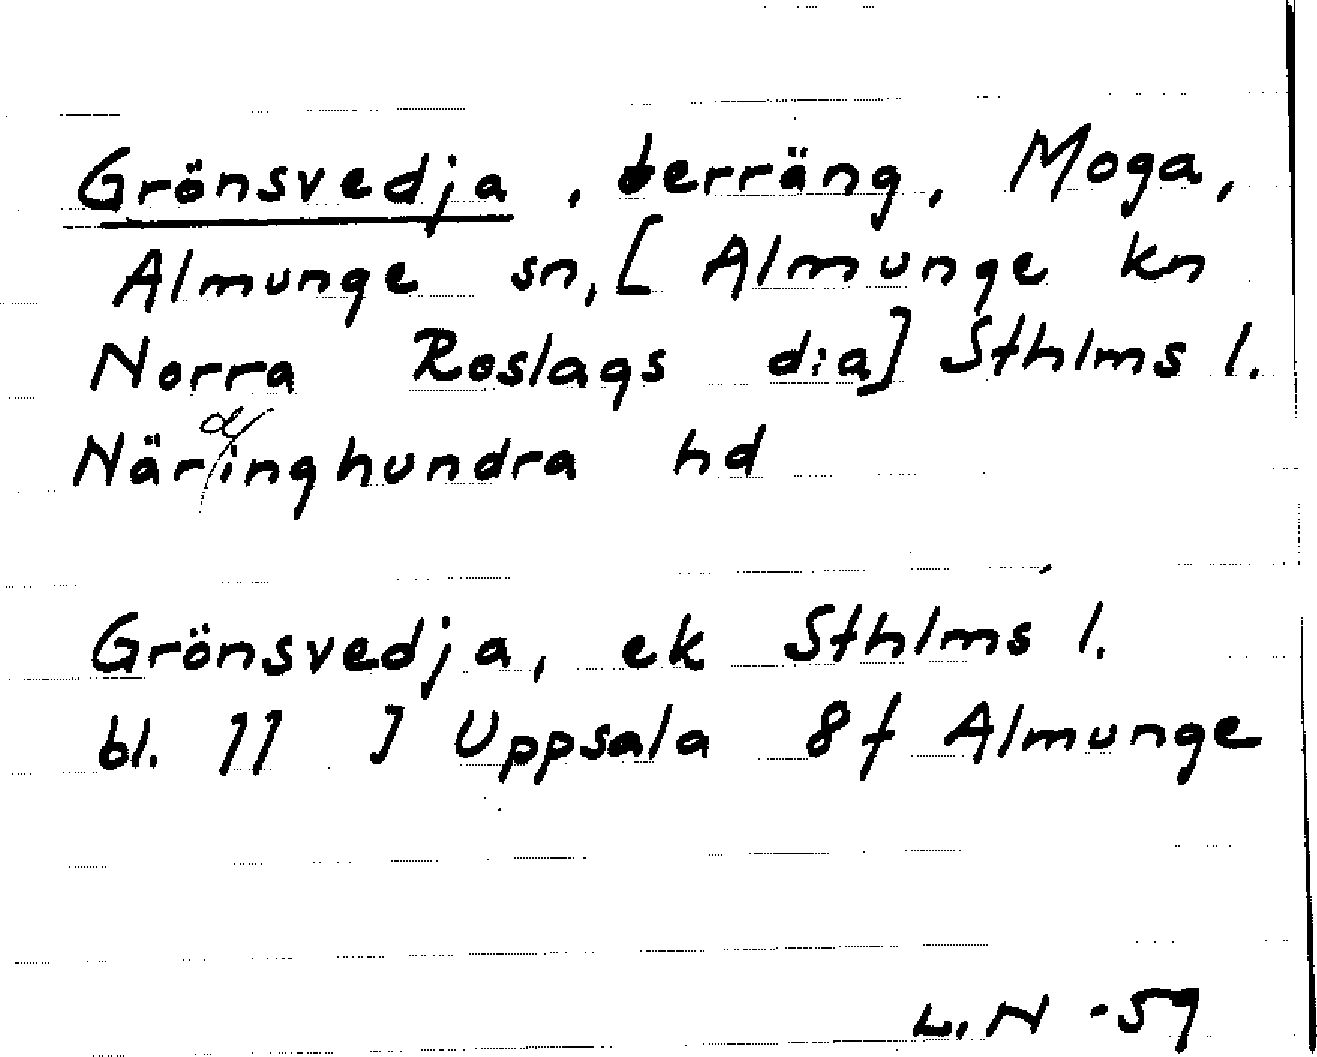 Grönsvedja, terräng, Moga,
Almunge sn, [Almunge kn
Norra Roslags d:a] Sthlms l.
Närdinghundra hd
Grönsvedja, ek Sthlms l.
bl. 77 J Uppsala 8f Almunge
L.N -59